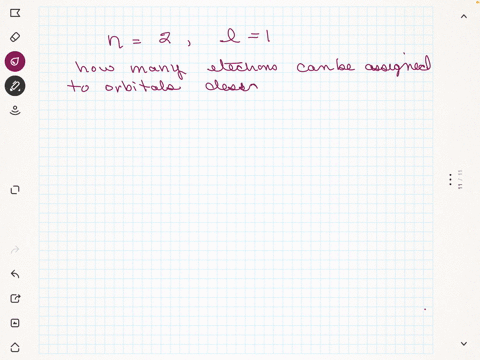 n = 2 , l = 1
how many electrons can be assigned
to orbitals
11 / 11